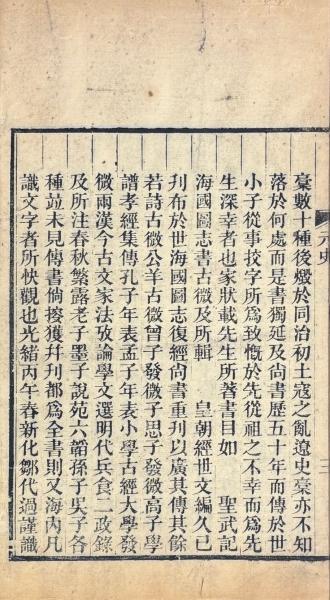 元史
稾數十種後燬於同治初土寇之亂遼史稾亦不知
落於何處而是書獨延及尙書歷五十年而傳於世
小子從事挍字所爲致慨於先從祖之不幸而爲先
生深幸者也家狀載先生所著書目如 聖武記
海國圖志書古微及所輯 皇朝經世文編久已
刋布於世海國圖志復經尙書重刋以廣其傳其餘
若詩古微公羊古微曾子發微子思子發微高子學
譜孝經集傳孔子年表孟子年表小學古經大學發
微兩漢今古文家法攷論學文選明代兵食二政錄
及所注春秋繁露老子墨子說苑六韜孫子吳子各
種竝未見傳書倘擦獲幷刋都爲全書則又海內凡
識文字者所怏觀也光緒丙午春新化鄒代過謹識